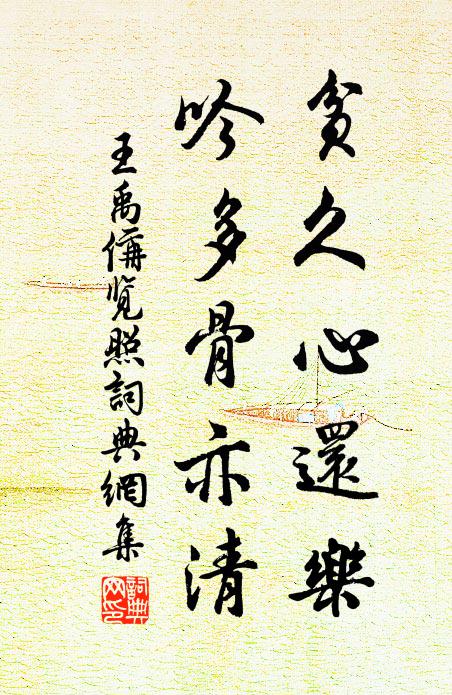 貧久心還樂
吟多骨亦清
王禹偁覽照詞典網集
詞典網印